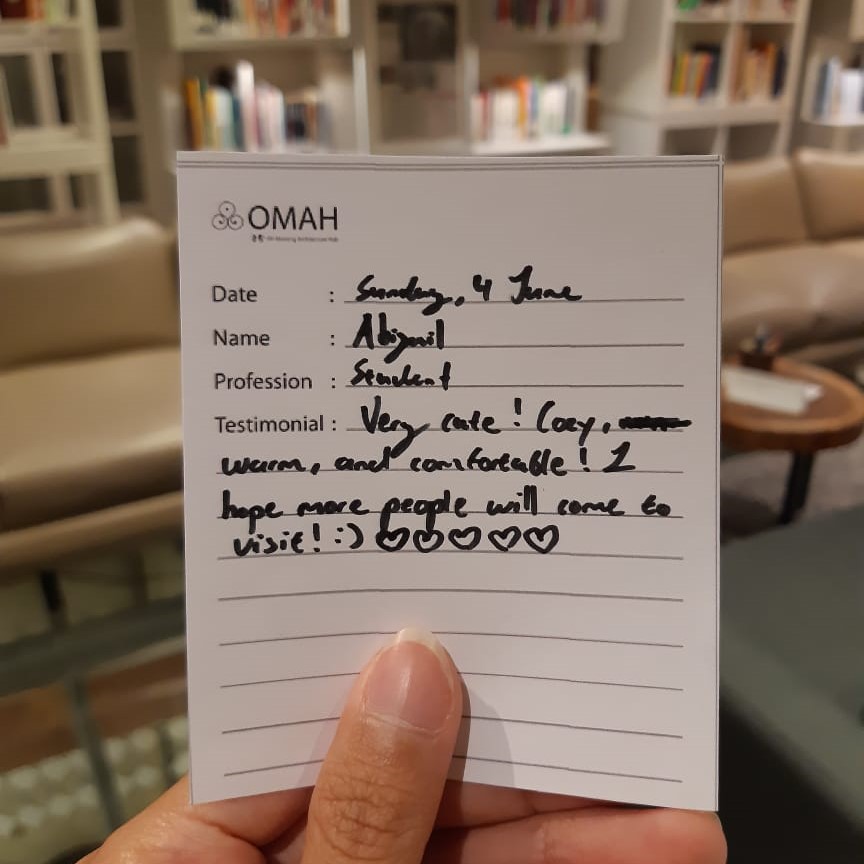 OMAH
Date : Sunday, 4 June
Name : Abigail
Profession : Student
Testimonial : Very cute! Cozy,
warm, and comfortable! I
hope more people will come to
visit! :) ♡♡♡♡♡